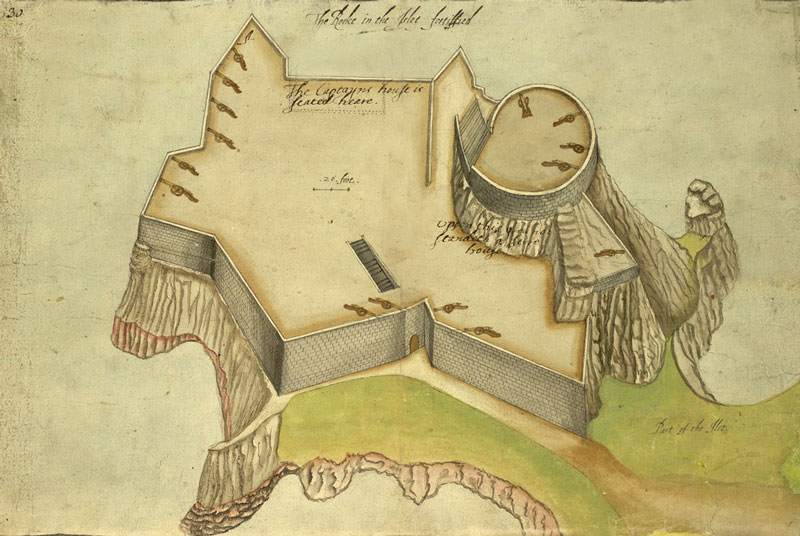 30
The Rocke in the Islet fortiffied
The Captayns house is
seated heare.
20 foot.
Upp
standeth a
house
Part of the Ilet